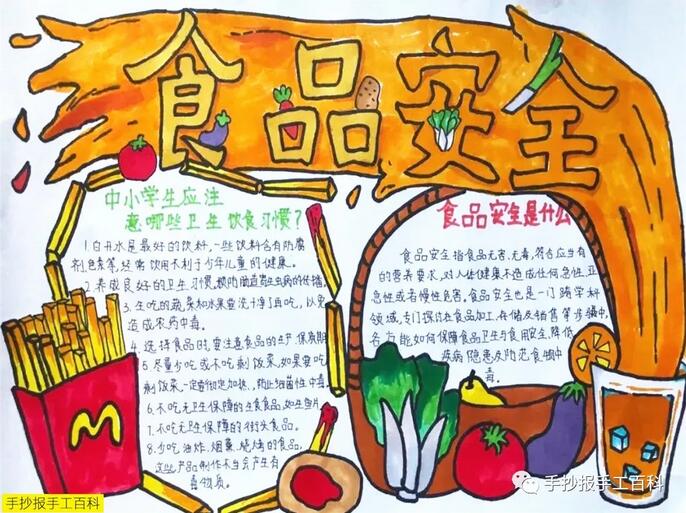 食品安全
中小学生应注
意哪些卫生饮食习惯?
1.白开水是最好的饮料,一些饮料含有防腐
剂,色素等,经常饮用不利于少年儿童的健康。
2.养成良好的卫生习惯,预防肠道寄生虫病的传播。
3.生吃的蔬菜和水果要洗干净了再吃,以免
造成农药中毒。
4.选择食品时,要注意食品的生产、保质期
5.尽量少吃或不吃剩饭菜,如果要吃
剩饭菜,一定要彻底加热,防止细菌性中毒
6.不吃无卫生保障的生食食品,如生鱼片
7.不吃无卫生保障的街头食品。
8.少吃油炸、烟熏、烧烤的食品,
这些产品制作不当会产生有
毒物质。
食品安全是什么
食品安全指食品无害、无毒,符合应当有
的营养要求,对人体健康不造成任何急性、亚
急性或者慢性危害。食品安全也是一门跨学科
领域,专门探讨在食品加工、存储及销售等步骤中,
各方能如何保障食品卫生与食用安全,降低
疾病隐患及防范食物中
毒。
M
手抄报手工百科
手抄报手工百科